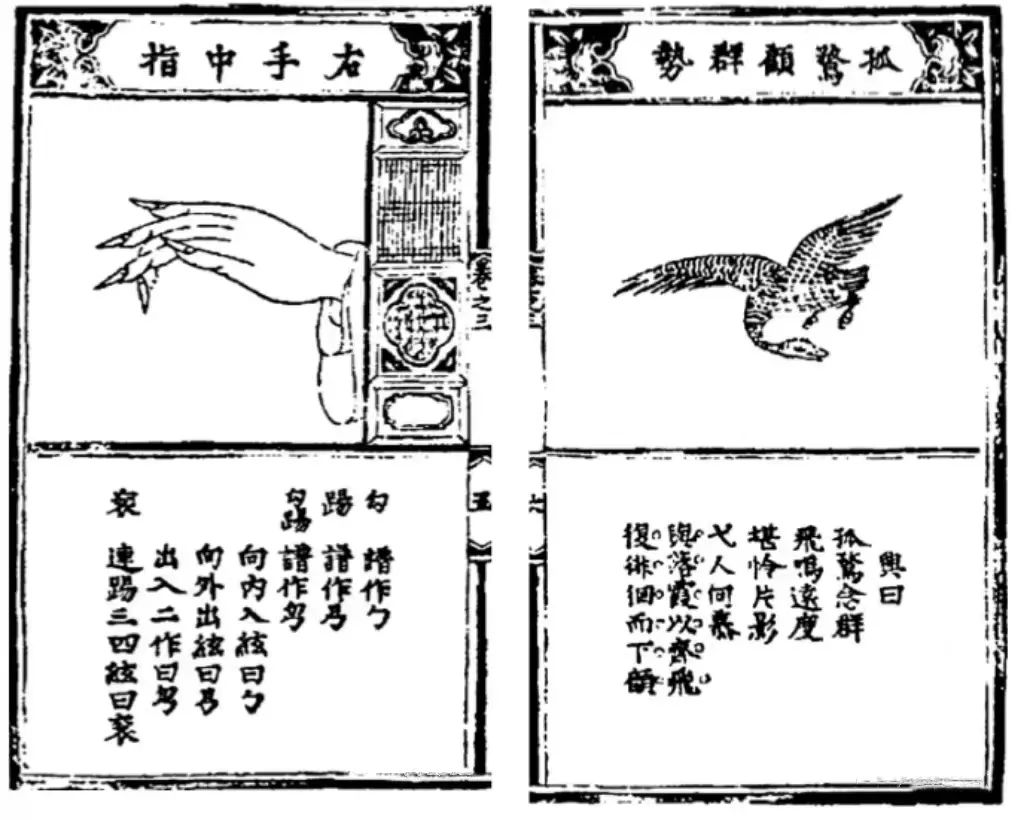 右手中指
勾 譜作勹
踢 譜作
勾踢 譜作
向内入絃曰勹
向外出絃曰
出入二作曰
連踢三四絃曰
卷之三
五
孤鶩顧群勢
興曰
孤鶩念群
飛鳴遠度
堪怜片影
弋人何慕
與落霞以齊飛
復徘徊而下顧
六